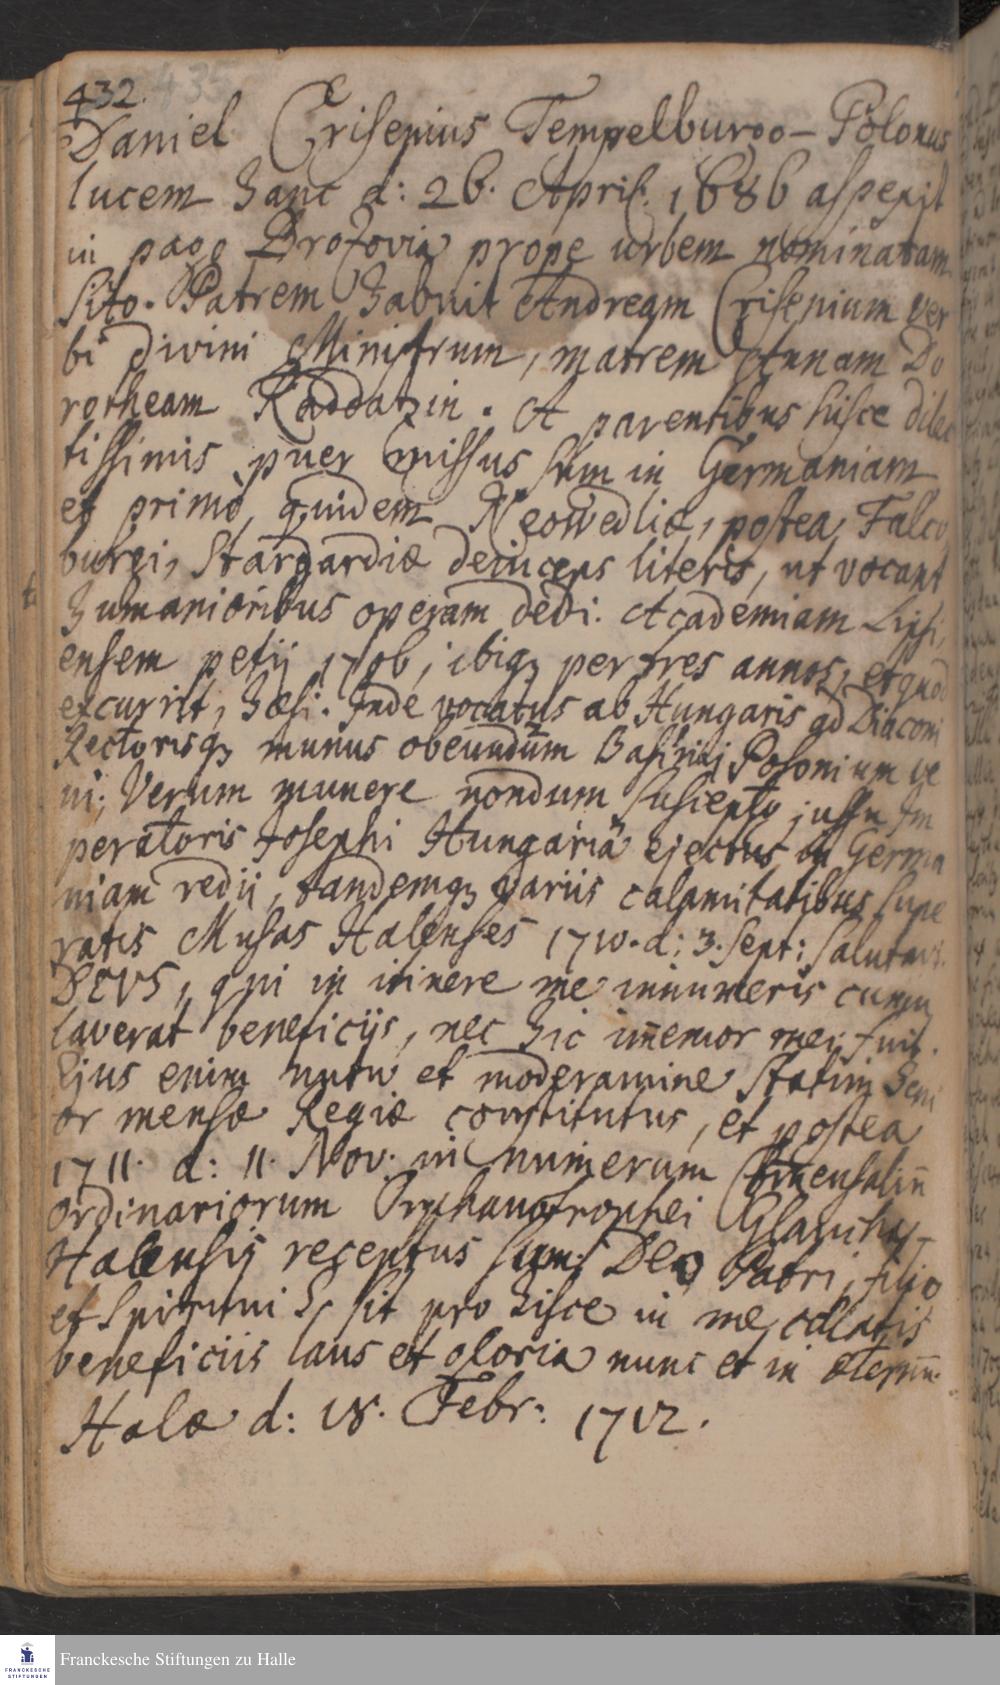 432. 435
Daniel Crisenius Tempelburgo-Polonus
lucem hanc d: 26. April. 1686 aspexit
in pago Brozovia prope urbem nominatam
sito. Patrem habuit Andream Crisenium Ver
bi divini Ministrum, matrem Annam Do
rotheam Kaddatzin. A parentibus hisce dilec
tissimis puer missus sum in Germaniam
et primò quidem Neowedliæ, postea Falco
burgi, Stargardiæ deinceps literis, ut vocant
humanioribus operam dedi. Academiam Lipsi,
ensem petij 1706, ibiq; per tres annos, et quod
excurrit, hæsi. Inde vocatus ab Hungaris ad Diaconi
Rectorisq; munus obeundum Posonium ve
ni; Verum munere nondum suscepto jussu Im
peratoris Josephi Hungariâ ejectus in Germa
niam redij, tandemq; variis calamitatibus supe
ratis Musas Halenses 1710. d: 3. Sept: salutavi.
DEVS, qui in itinere me innumeris cumu
laverat beneficijs, nec hic im̄emor mei fuit.
Ejus enim nutu et moderamine statim Seni
or mensæ Regiæ constitutus, et postea
1711. d: 11. Nov. in numerum Com̄ensaliū
ordinariorum Orphanotrophei Glauchâ-
Halensis receptus sum. DEO Patri, filio
et Spiritui S. sit pro hisce in me collatis
beneficiis laus et gloria nunc et in æternū.
Halæ d: 18. Febr: 1712.
FRANCKESCHE
STIFTUNGEN
Franckesche Stiftungen zu Halle